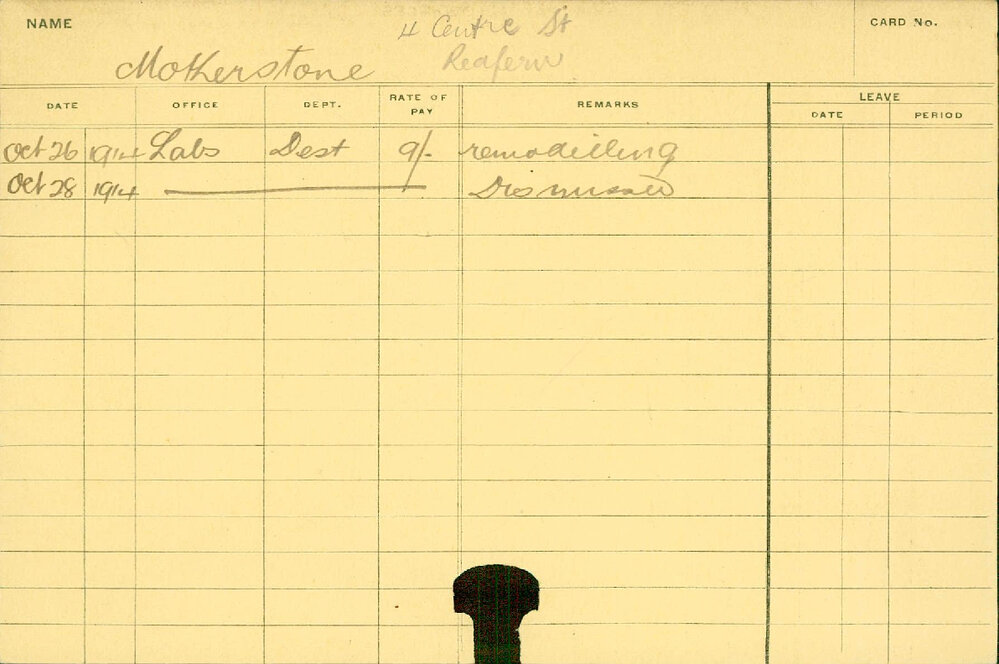 NAME 4 Centre St CARD No.
Motherstone Redfern
DATE OFFICE DEPT. RATE OF PAY REMARKS LEAVE
DATE PERIOD
Oct 26 1914 Labs Dest 9/- remodelling
Oct 28 1914 Dismissed